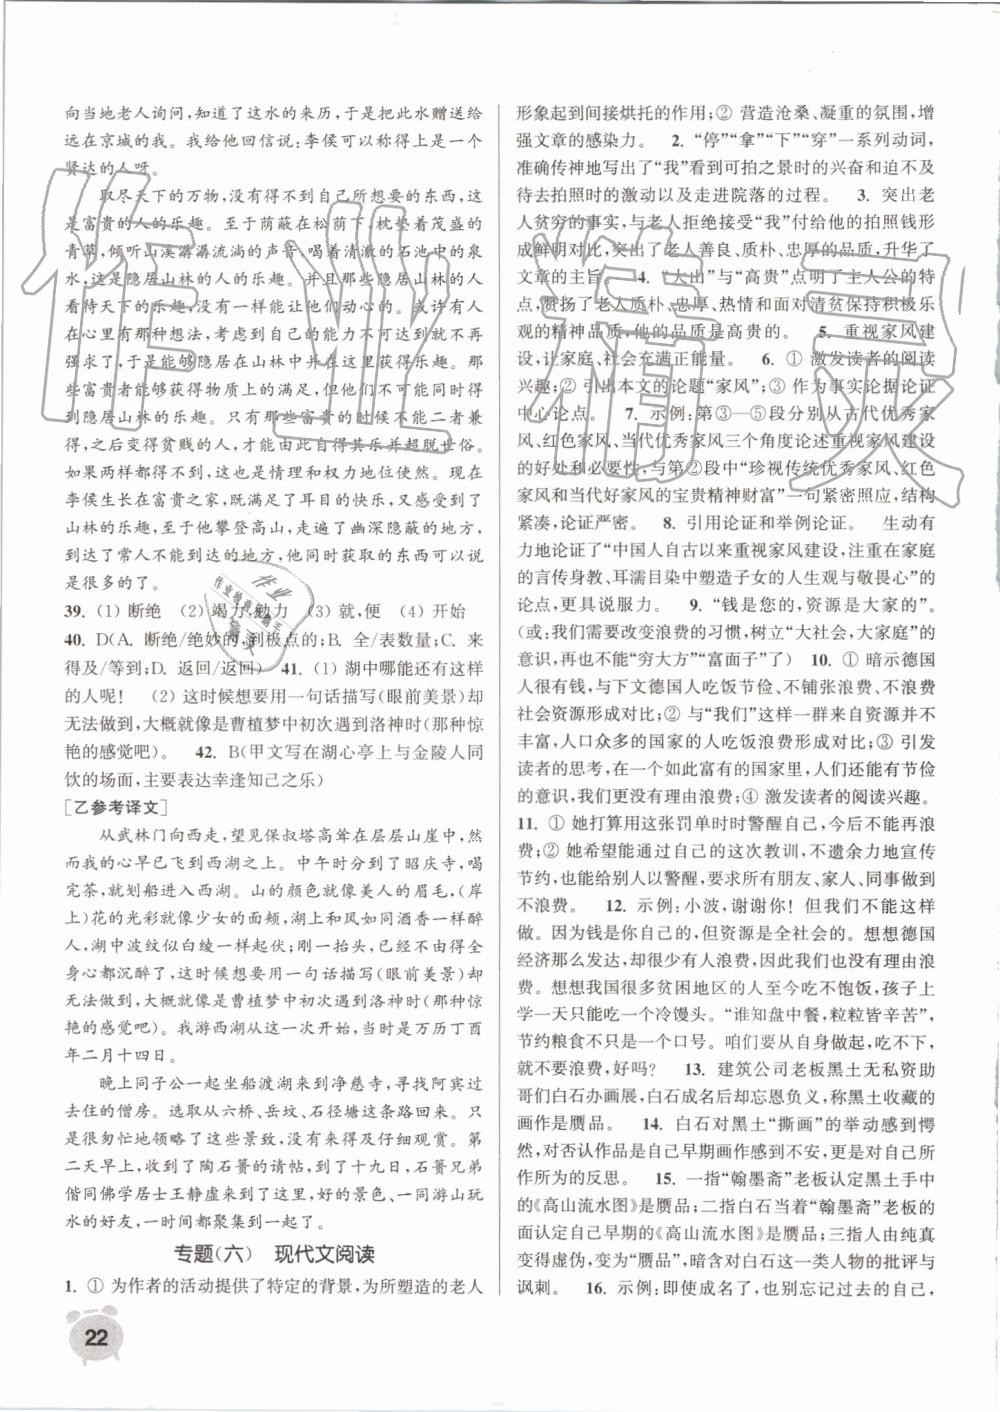 向当地老人询问,知道了这水的来历,于是把此水赠送给
远在京城的我。我给他回信说:李侯可以称得上是一个
贤达的人呀。
取尽天下的万物,没有一样得不到自己所想要的东西,这
是富贵的人的乐趣。至于荫蔽在松荫下,枕垫着茂盛的
青草,倾听山溪潺潺流淌的声音,喝着清澈的石池中的泉
水,这是隐居山林的人的乐趣。并且隐居在山林里的人
看待天下的乐趣,没有一样能让他们动心的。或许,有人
在心里有那种想法,考虑到自己的能力不可达到就不再
强求了,于是能够隐居在山林中并在这里获得乐趣。那
些富贵的人能够获得物质上的满足,但他们不能同时得
到隐居山林的乐趣。只有那些富贵的人对富贵感到厌倦
之后,之后变得贫贱的人,才能由此自得其乐并超脱世俗。
如果两样都得不到,这也是情理和权力地位使然。现在
李侯生长在富贵之家,满足了耳目的快乐,又感受到了
山林的乐趣,至于他攀登高山,走遍了幽深隐蔽的地方,
到达了常人不能到达的地方,他同时获取的东西可以说
是很多的了。
39. (1) 断绝 (2) 竭力,勉力 (3) 就,便 (4) 开始
40. D(A. 断绝/绝妙的,到极点的;B. 全/表数量;C. 来
得及/等到;D. 返回/返回) 41. (1) 湖中哪能还有这样
的人呢! (2) 这时候想要用一句话描写(眼前美景)却
无法做到,大概就像是曹植梦中初次遇到洛神时(那种惊
艳的感觉吧)。 42. B(甲文写在湖心亭上与金陵人同
饮的场面,主要表达幸逢知己之乐)
[乙参考译文]
从武林门向西走,望见保叔塔高耸在层层山崖中,然
而我的心早已飞到西湖之上。中午时分到了昭庆寺,喝
完茶,就划船进入西湖。山的颜色就像美人的眉毛,(岸
上)花的光彩就像少女的面颊,湖上和风如同酒香一样醉
人,湖中波纹似白绫一样起伏;刚一抬头,已经不由得全
身心都沉醉了,这时候想要用一句话描写(眼前美景)却
无法做到,大概就像曹植梦中初次遇到洛神时(那种惊
艳的感觉吧)。我游西湖从这一次开始,当时是万历丁酉
年二月十四日。
晚上同子公一起坐船渡湖来到净慈寺,寻找阿宾过
去住的僧房。选取从六桥、岳坟、石径塘这条路回来。只
是很匆忙地领略了这些景致,没有来得及仔细观赏。第
二天早上,收到了陶石篑的请帖,到了十九日,石篑兄弟
偕同佛学居士王静虚来到,好的景色、一同游山玩
水的好友,一时间都聚集到一起了。
专题(六) 现代文阅读
1. ① 为作者的活动提供了特定的背景,为所塑造的老人
形象起到间接烘托的作用;② 营造沧桑、凝重的氛围,增
强文章的感染力。 2. “停”“拿”“下”“穿”一系列动词,
准确传神地写出了“我”看到可拍之景时的兴奋和迫不及
待去拍照时的激动以及走进院落的过程。 3. 突出老
人贫穷的事实,与老人拒绝接受“我”付给他的拍照钱形
成鲜明对比,突出了老人善良、质朴、忠厚的品质,升华了
文章的主旨。 4. “大出”与“高贵”点明了主人公的特
点,赞扬了老人质朴、忠厚、热情和面对清贫保持积极乐
观的精神品质,他的品质是高贵的。 5. 重视家风建
设,让家庭、社会充满正能量。 6. ① 激发读者的阅读
兴趣;② 引出本文的论题“家风”;③ 作为事实论据论证
中心论点。 7. 示例:第③—⑤段分别从古代优秀家
风、红色家风、当代优秀家风三个角度论述重视家风建设
的好处和必要性,与第②段中“珍视传统优秀家风、红色
家风和当代好家风的宝贵精神财富”一句紧密照应,结构
紧凑,论证严密。 8. 引用论证和举例论证。 生动有
力地论证了“中国人自古以来重视家风建设,注重在家庭
的言传身教、耳濡目染中塑造子女的人生观与敬畏心”的
论点,具有说服力。 9. “钱是您的,资源是大家的”。
(或:我们需要改变浪费的习惯,树立“大社会,大家庭”的
意识,再也不能“穷大方”“富面子”了) 10. ① 暗示德国
人很有钱,与下文德国人吃饭节俭、不铺张浪费、不浪费
社会资源形成对比;② 与“我们”这样一群来自资源并不
丰富,人口众多的国家的人吃饭浪费形成对比;③ 引发
读者的思考,在如此富有的国家里,人们还能有节俭
的意识,我们更没有理由浪费;④ 激发读者的阅读兴趣。
11. ① 她打算用这张罚单时时警醒自己,今后不能再浪
费;② 她希望能通过自己的这次教训,不遗余力地宣传
节约,也能给别人以警醒,要求所有朋友、家人、同事做到
不浪费。 12. 示例:小波,谢谢你!但我们不能这样
做。因为钱是你自己的,但资源是全社会的。想想德国
经济那么发达,却很少有人浪费,我们就更没有理由浪
费。想想我国很多贫困地区的人至今吃不饱饭,孩子上
学一天只能吃一个冷馒头。“谁知盘中餐,粒粒皆辛苦”,
节约粮食不只是一个口号。咱们要吃多少点多少,吃不下,
就不要浪费,好吗? 13. 建筑公司老板黑土无私资助
哥们白石办画展,白石成名后却忘恩负义,称黑土收藏的
画作是赝品。 14. 白石对黑土“撕画”的举动感到愕
然,对否认自己早期画作感到不安,更是对自己所作
所为的反思。 15. 一指“翰墨斋”老板认定黑土手中
的《高山流水图》是赝品;二指白石当着“翰墨斋”老板的
面认定自己早期的《高山流水图》是赝品;三指人由纯真
变得虚伪,为“赝品”,表达对白石这一类人物的批评与
讽刺。 16. 示例:即使成名了,也别忘记过去的自己,
22